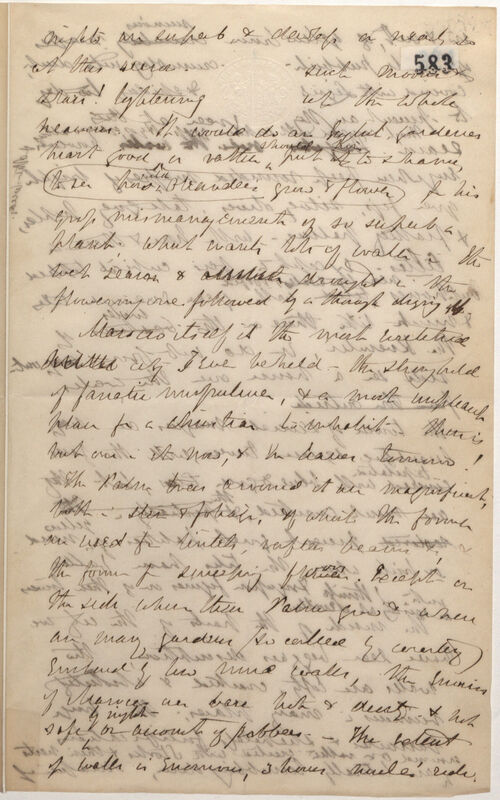 nights are superb & dewtop
at this season. such moons &
583
stars! lightening the whole
heavens. It would do an English gardeners
heart good, or rather, should put to shame
to see how Oleanders grow & flower for his
gross mismanagement of so superb a
plant. what wants lots of water in the
wet season & drought in the
flowering one followed by a thorough drying
Marocco itself is the most wretched
city I ever beheld — the stronghold
of fanatic mussulmen, & a most unpleasant
place for a Christian to inhabit There is
but one in it now, & he leaves tomorrow!
The Palm trees around it are magnificent,
both in stem & foliage, of which the former
are used for lintels, rafters, beams & &
the former for sweeping floors. Except on
the side where these Palms grow & where
are many gardens (so called by courtesy)
Enclosed by low mud walls, the environs
of Marocco are bare hot & desert & not
safe by night on account of robbers. — The extent
of walls is enormous, 3 hours mules ride.